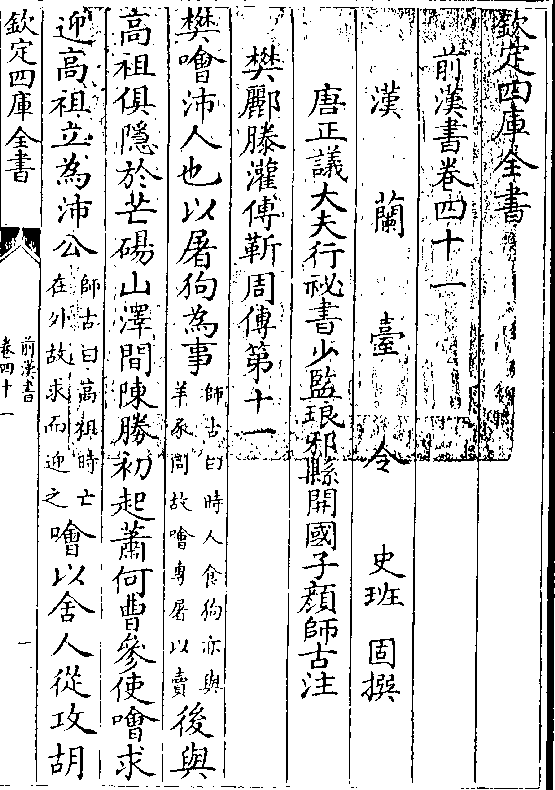 欽定四庫全書
前漢書卷四十一
漢蘭臺令史班固撰
唐正議大夫行祕書少監琅邪縣開國子顏師古注
樊酈滕灌傅靳周傳第十一
樊噲沛人也以屠狗為事師古曰時人食狗亦與羊豕同故噲專屠以賣後與
高祖俱隱於芒碭山澤間陳勝初起蕭何曹參使噲求
迎高祖立為沛公師古曰高祖時亡在外故求而迎之噲以舍人從攻胡
欽定四庫全書
前漢書
卷四十一
一